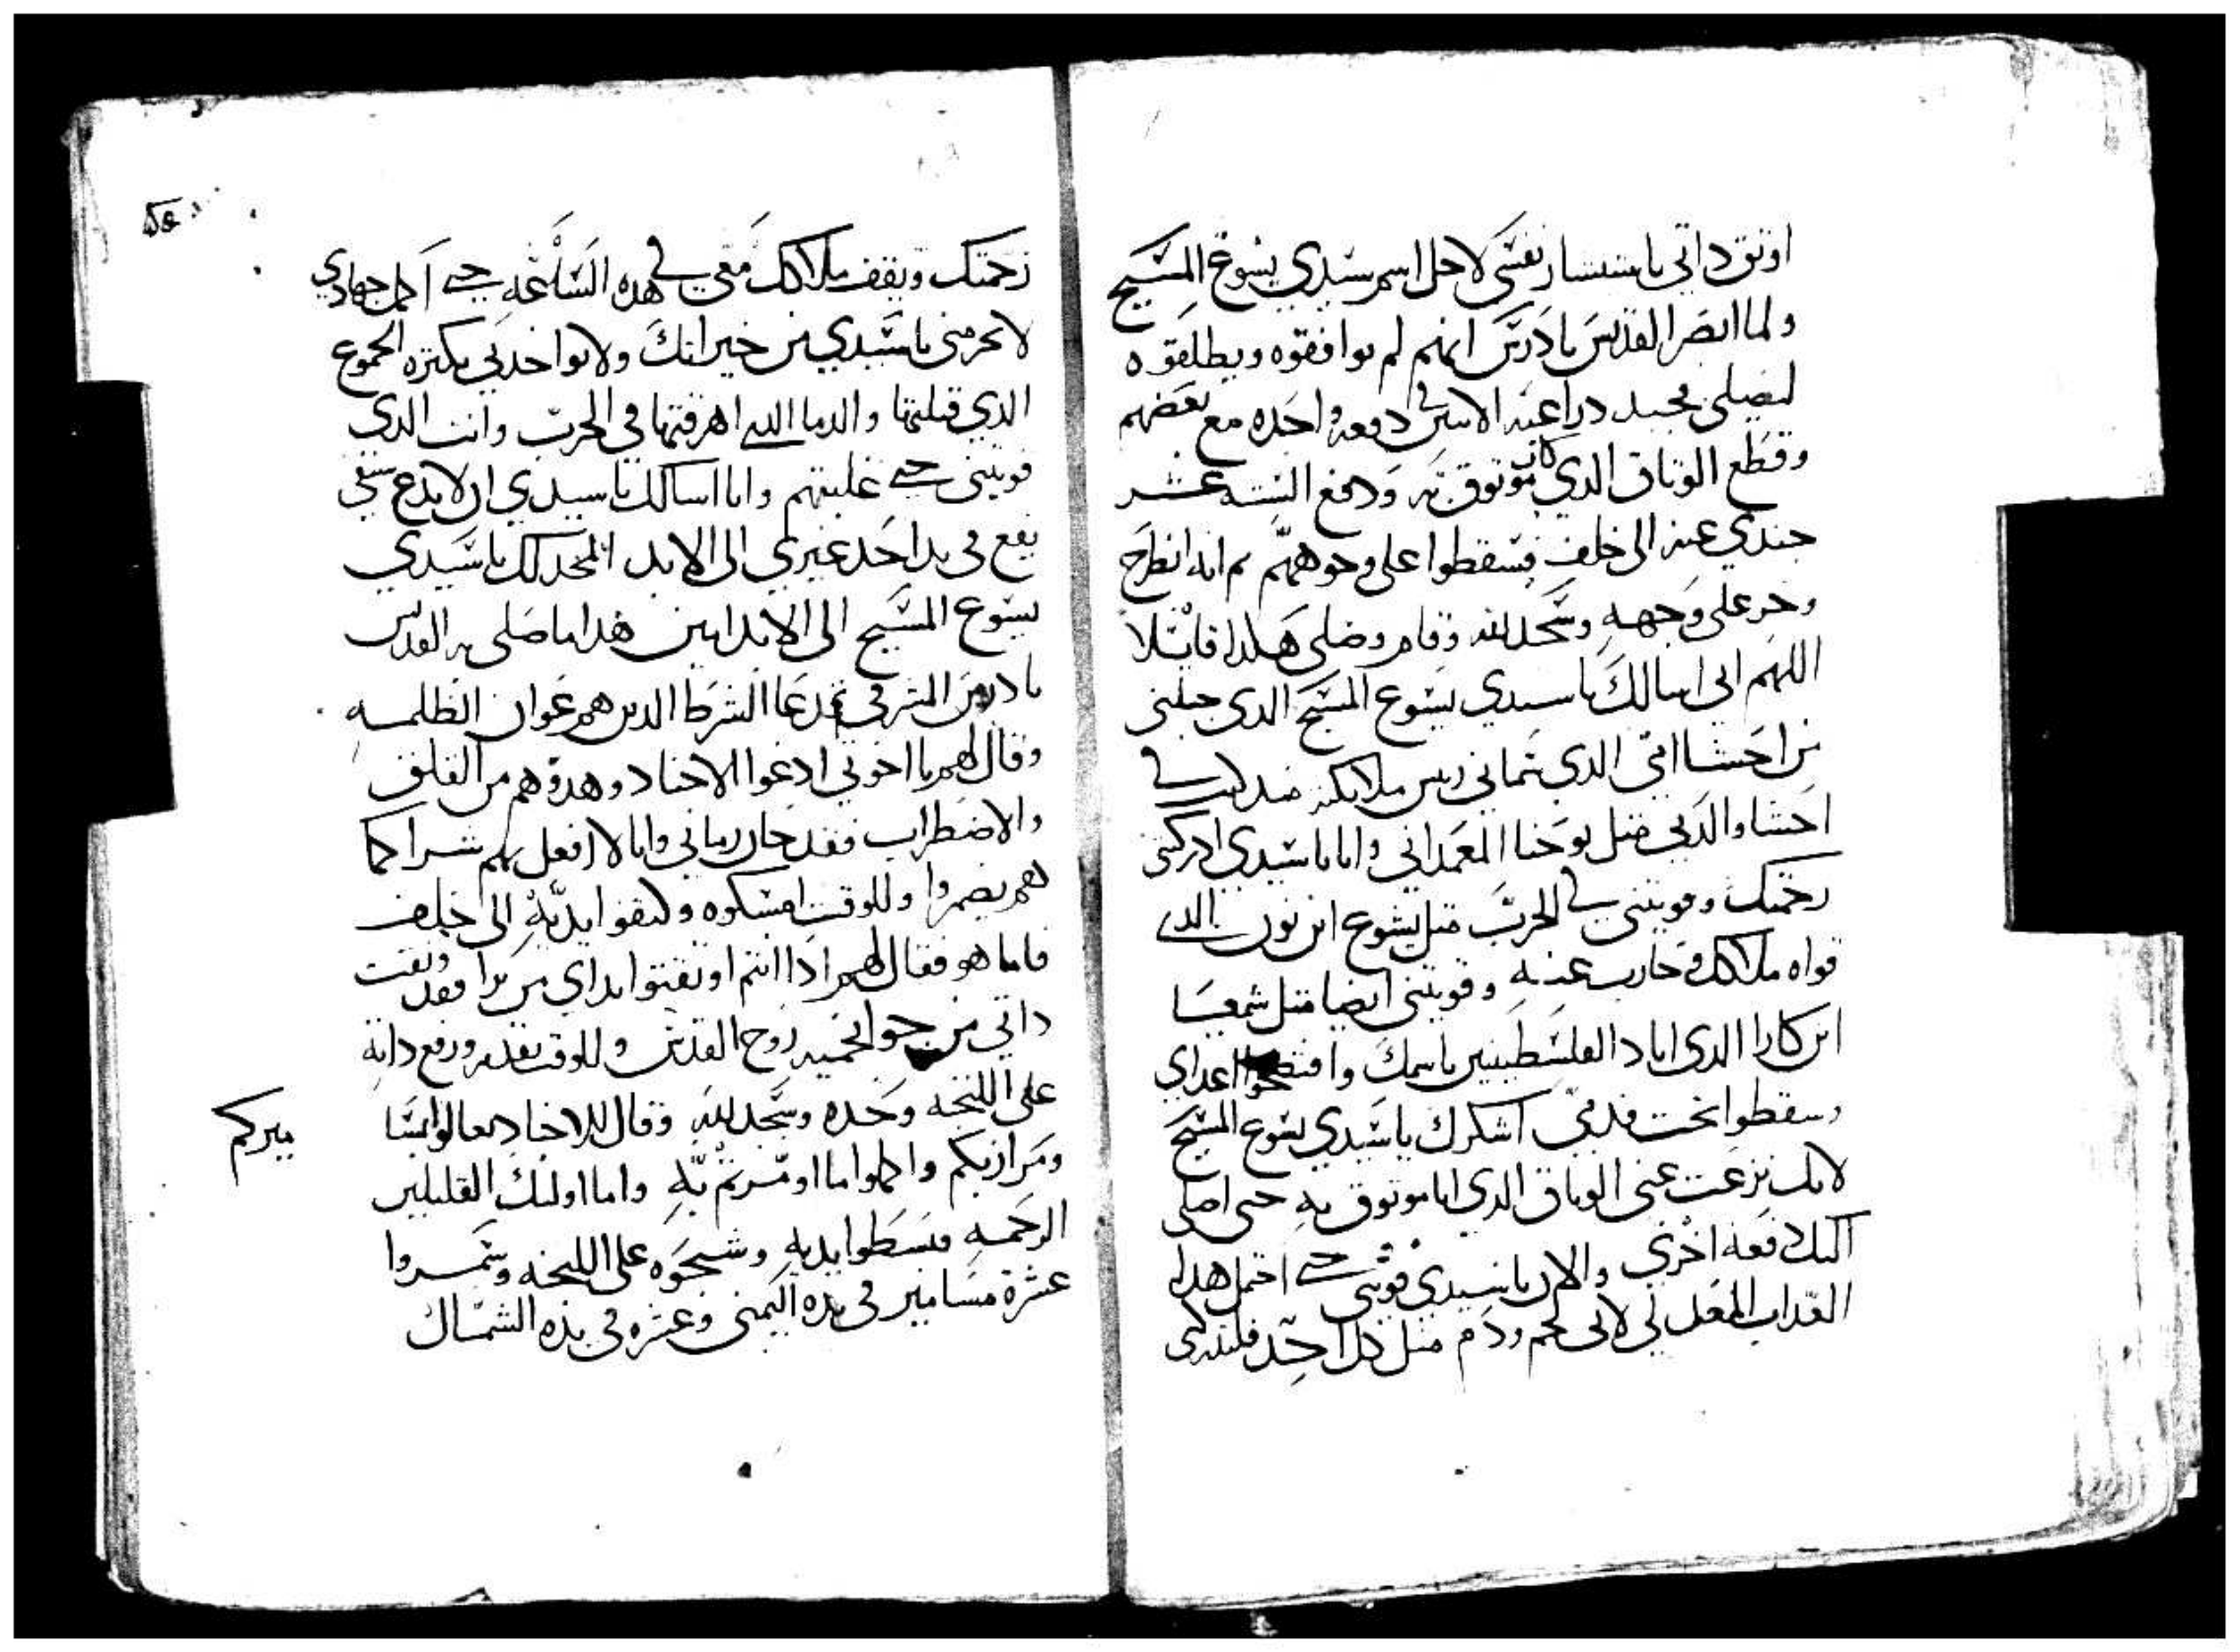 اوثق داتي باستيسار نفسي لاجل اسم سيدي يسوع المسيح
ولما ابصر القديس تادرس انهم لم يوافقوه ويطلقوه
ليصلي فجبد دراعيه الاتنين في دفعه واحده مع بعضهم
وقطع الوتاق الدي كان موتوق به ودفع السته عشر
جندي عنه الى خلف فسقطوا على وجوههم ثم انه انطرح
وخر على وجهه وسجد لله وقام وصلى هكدا قايلا
اللهم اني اسالك يا سيدي يسوع المسيح الدي جبلني
من احشا امي الدي سماني ريس ملايكته مند كنت في
احشا والدتي متل يوحنا المعمداني وانا يا سيدي ادركني
رحمتك وقويتني في الحرب متل يشوع ابن نون الدي
قواه ملاكك وحارب عنه وقويتني ايضا متل شمعيا
ابن كارا الدي اباد الفلسطينيين باسمك وافتضحوا اعداي
وسقطوا تحت قدمي اشكرك يا سيدي يسوع المسيح
لانك نزعت عني الوتاق الدي انا موتوق به حتى اصلي
اليك دفعة اخرى والان يا سيدي قويني حتى احتمل هدا
العداب المعد لي لاني لحم ودم متل كل احد فلتدركني
رحمتك ويقف ملاكك معي في هده الساعه حتى اكمل جهادي
لا تحرمني يا سيدي من خيراتك ولا تواخدني بكتره الجموع
الدي قتلتها والدما التي اهرقتها في الحرب وانت الدي
قويتني حتى غلبتهم وانا اسالك يا سيدي ان لا تدع سيفي
يقع في يد احد غيري الى الابد المجد لك يا سيدي
يسوع المسيح الى الابد امين هدا ما صلى به القديس
تادرس المشرقي تم دعا الشرط الدين هم عوان الظلمه
وقال لهم يا اخوتي ادعوا الاجناد وهدوهم من القلق
والاضطراب فقد حان زماني وانا لا افعل بهم شرا كما
هم يضمروا وللوقت امسكوه وكتفوا يديه الى خلف
فاما هو فقال لهم ادا انتم اوتقتوا يداي من برا فقد وتقت
داتي من جوا بخميه روح القدس وللوقت تقدم ورفع داته
على اللبخه وحده وسجد لله وقال للاجناد تعالوا ايشا
ومرازبكم واكملوا ما اومرتم به واما اوليك القليلين
الرحمه فبسطوا يديه وشبحوه على اللبخه وسمروا
عشرة مسامير في يده اليمنى وعشره في يده الشمال
ميركم